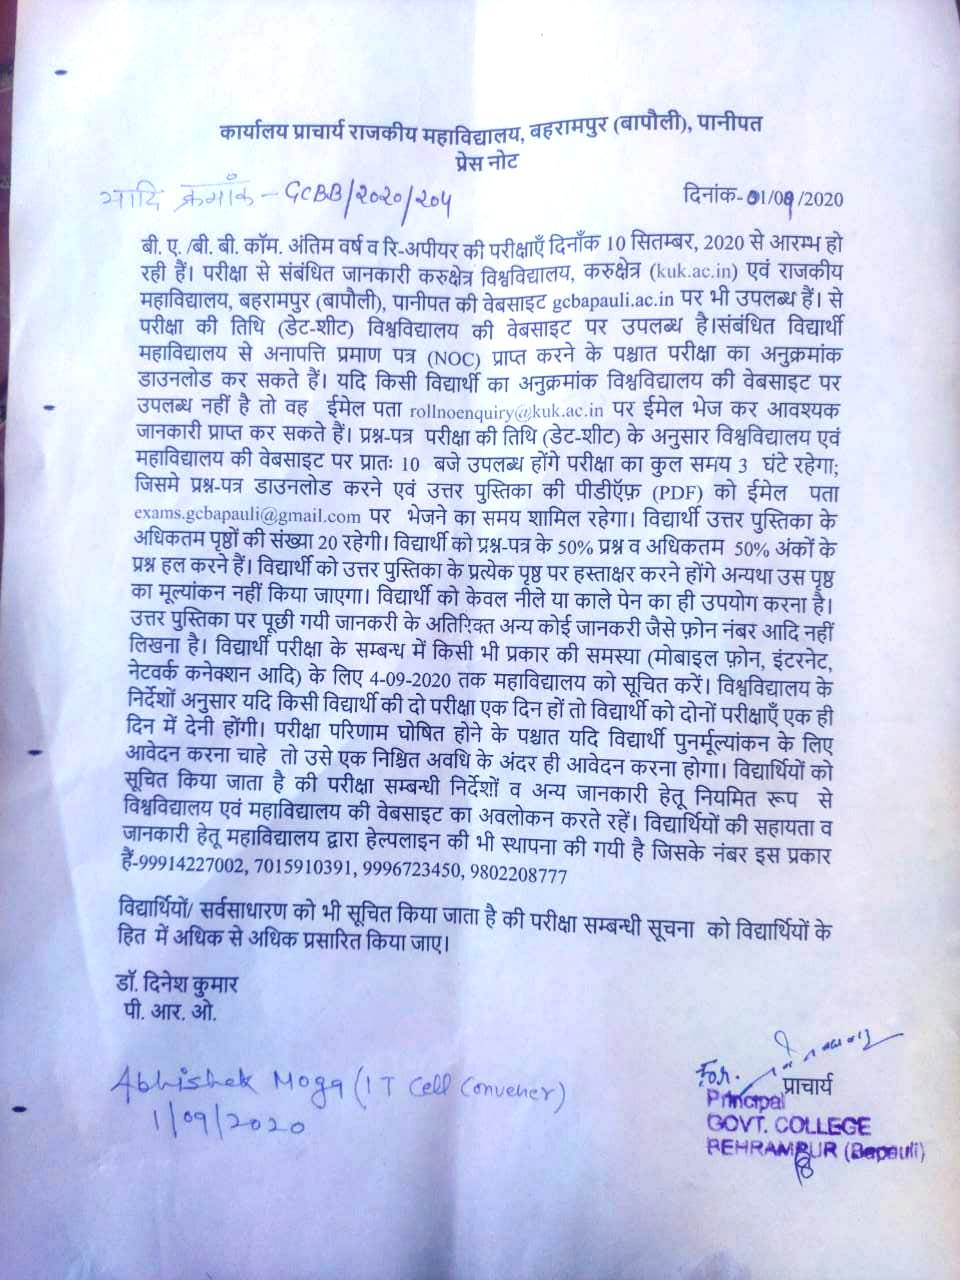 कार्यालय प्राचार्य राजकीय महाविद्यालय, बहरामपुर (बापौली), पानीपत
प्रेस नोट
यादि क्रमाँक - GCBB/२०२०/२०५
दिनांक-01/09/2020
बी. ए. /बी. बी. कॉम. अंतिम वर्ष व रि-अपीयर की परीक्षाएँ दिनाँक 10 सितम्बर, 2020 से आरम्भ हो
रही हैं। परीक्षा से संबंधित जानकारी करुक्षेत्र विश्वविद्यालय, करुक्षेत्र (kuk.ac.in) एवं राजकीय
महाविद्यालय, बहरामपुर (बापौली), पानीपत की वेबसाइट gcbapauli.ac.in पर भी उपलब्ध हैं। से
परीक्षा की तिथि (डेट-शीट) विश्वविद्यालय की वेबसाइट पर उपलब्ध है।संबंधित विद्यार्थी
महाविद्यालय से अनापत्ति प्रमाण पत्र (NOC) प्राप्त करने के पश्चात परीक्षा का अनुक्रमांक
डाउनलोड कर सकते हैं। यदि किसी विद्यार्थी का अनुक्रमांक विश्वविद्यालय की वेबसाइट पर
उपलब्ध नहीं है तो वह ईमेल पता rollnoenquiry@kuk.ac.in पर ईमेल भेज कर आवश्यक
जानकारी प्राप्त कर सकते हैं। प्रश्न-पत्र परीक्षा की तिथि (डेट-शीट) के अनुसार विश्वविद्यालय एवं
महाविद्यालय की वेबसाइट पर प्रातः 10 बजे उपलब्ध होंगे परीक्षा का कुल समय 3 घंटे रहेगा;
जिसमे प्रश्न-पत्र डाउनलोड करने एवं उत्तर पुस्तिका की पीडीऍफ़ (PDF) को ईमेल पता
exams.gcbapauli@gmail.com पर भेजने का समय शामिल रहेगा। विद्यार्थी उत्तर पुस्तिका के
अधिकतम पृष्ठों की संख्या 20 रहेगी। विद्यार्थी को प्रश्न-पत्र के 50% प्रश्न व अधिकतम 50% अंकों के
प्रश्न हल करने हैं। विद्यार्थी को उत्तर पुस्तिका के प्रत्येक पृष्ठ पर हस्ताक्षर करने होंगे अन्यथा उस पृष्ठ
का मूल्यांकन नहीं किया जाएगा। विद्यार्थी को केवल नीले या काले पेन का ही उपयोग करना है।
उत्तर पुस्तिका पर पूछी गयी जानकरी के अतिरिक्त अन्य कोई जानकरी जैसे फ़ोन नंबर आदि नहीं
लिखना है। विद्यार्थी परीक्षा के सम्बन्ध में किसी भी प्रकार की समस्या (मोबाइल फ़ोन, इंटरनेट,
नेटवर्क कनेक्शन आदि) के लिए 4-09-2020 तक महाविद्यालय को सूचित करें। विश्वविद्यालय के
निर्देशों अनुसार यदि किसी विद्यार्थी की दो परीक्षा एक दिन हों तो विद्यार्थी को दोनों परीक्षाएँ एक ही
दिन में देनी होंगी। परीक्षा परिणाम घोषित होने के पश्चात यदि विद्यार्थी पुनर्मूल्यांकन के लिए
आवेदन करना चाहे तो उसे एक निश्चित अवधि के अंदर ही आवेदन करना होगा। विद्यार्थियों को
सूचित किया जाता है की परीक्षा सम्बन्धी निर्देशों व अन्य जानकारी हेतू नियमित रूप से
विश्वविद्यालय एवं महाविद्यालय की वेबसाइट का अवलोकन करते रहें। विद्यार्थियों की सहायता व
जानकारी हेतू महाविद्यालय द्वारा हेल्पलाइन की भी स्थापना की गयी है जिसके नंबर इस प्रकार
हैं-99914227002, 7015910391, 9996723450, 9802208777
विद्यार्थियों/ सर्वसाधारण को भी सूचित किया जाता है की परीक्षा सम्बन्धी सूचना को विद्यार्थियों के
हित में अधिक से अधिक प्रसारित किया जाए।
डॉ. दिनेश कुमार
पी. आर. ओ.
Abhishek Moga (IT Cell Convener)
1/09/2020
For.
प्राचार्य
Principal
GOVT. COLLEGE
BEHRAMPUR (Bapauli)